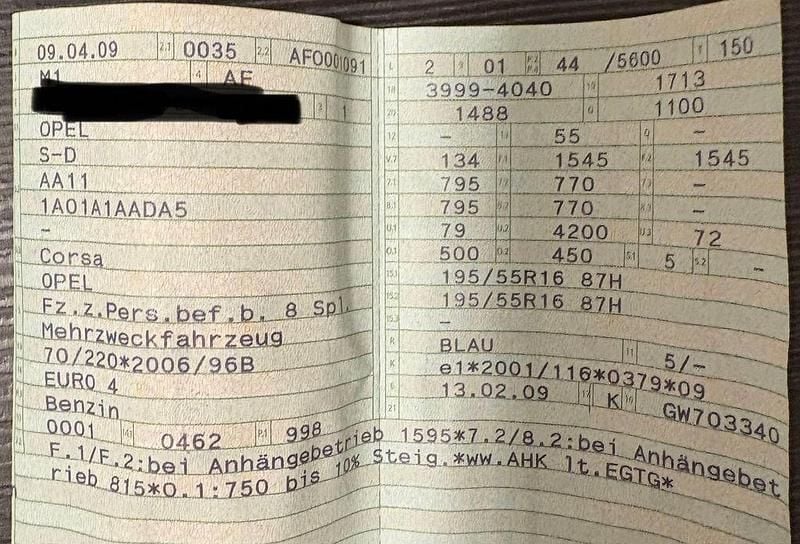 09.04.09 2.1 0035 2.2 AF0001091
M1 4 AF
3 1
OPEL
S-D
AA11
1A01A1AADA5
-
Corsa
OPEL
Fz.z.Pers.bef.b. 8 Spl.
Mehrzweckfahrzeug
70/220*2006/96B
EURO 4
Benzin
0001 0462 P.1 998
L 2 9 01 P.2 P.4 44 /5600 T 150
18 3999-4040 19 1713
20 1488 G 1100
12 - 13 55 Q -
V.7 134 F.1 1545 F.2 1545
7.1 795 7.2 770 7.3 -
8.1 795 8.2 770 8.3 -
U.1 79 U.2 4200 U.3 72
O.1 500 O.2 450 S.1 5 S.2 -
15.1 195/55R16 87H
15.2 195/55R16 87H
15.3 -
R BLAU 11 5/-
K e1*2001/116*0379*09
6 13.02.09 17 K 16 GW703340
21
F.1/F.2:bei Anhängebetrieb 1595*7.2/8.2:bei Anhängebet
rieb 815*O.1:750 bis 10% Steig.*ww.AHK lt.EGTG*